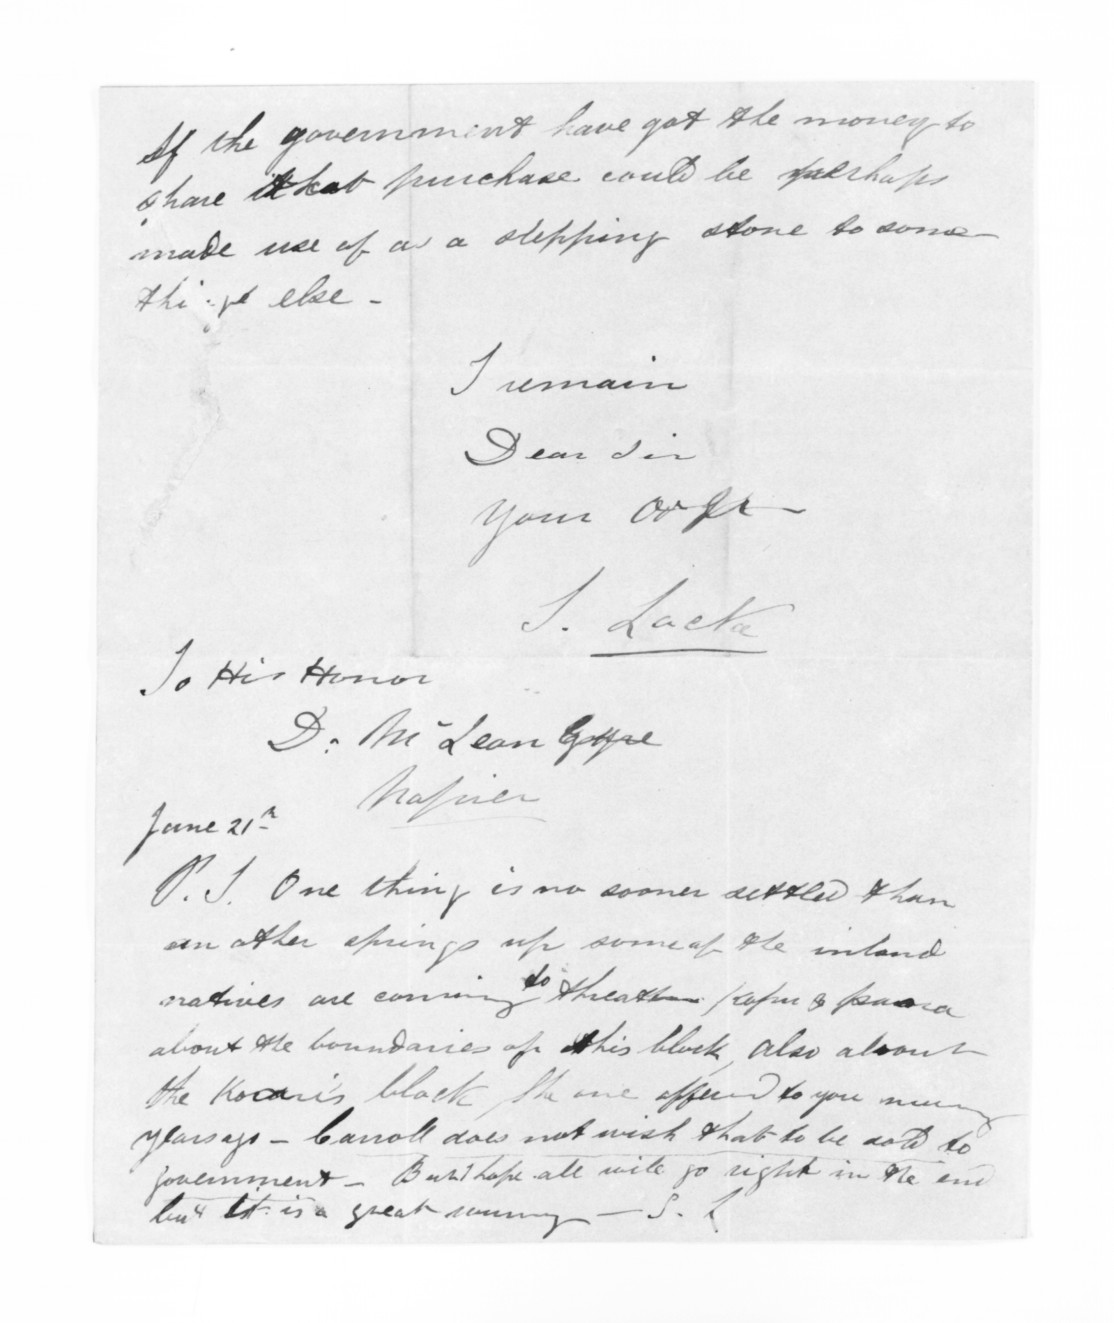 If the government have got the money to
share that purchase could be perhaps
made use of as a stepping stone to some
thing else -
I remain
Dear Sir
Your
S. Locke
To His Honor
D. McLean Esqre
Napier
June 21st
P.S. One thing is no sooner settled than
an other springs up some of the inland
natives are coming to threaten &
about the boundaries of this block, also about
the block the one offered to you many
years ago - Carroll does not wish that to be sold to
government - But I hope all will go right in the end
but it is a great worry - S. L